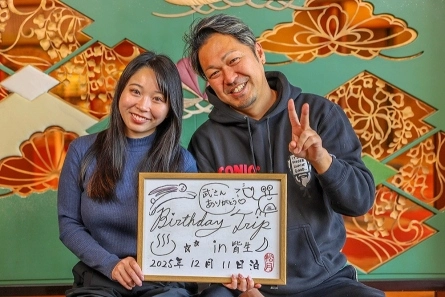 武さん
ありがとう♡
Birthday Trip
in 皆生♪
2025年 12月 11日 泊